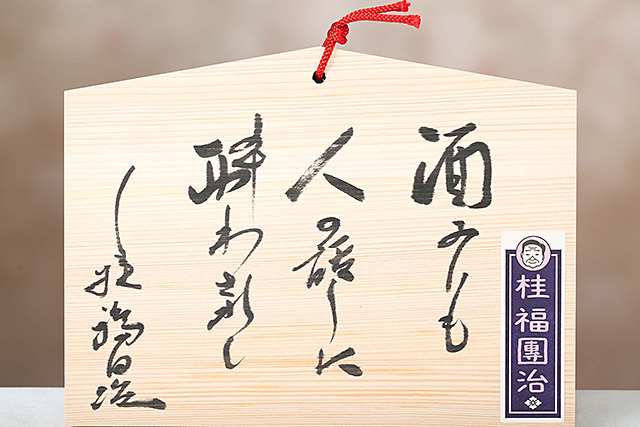 酒よりも
人の話しに
酔わされし
桂福団治
桂福團治